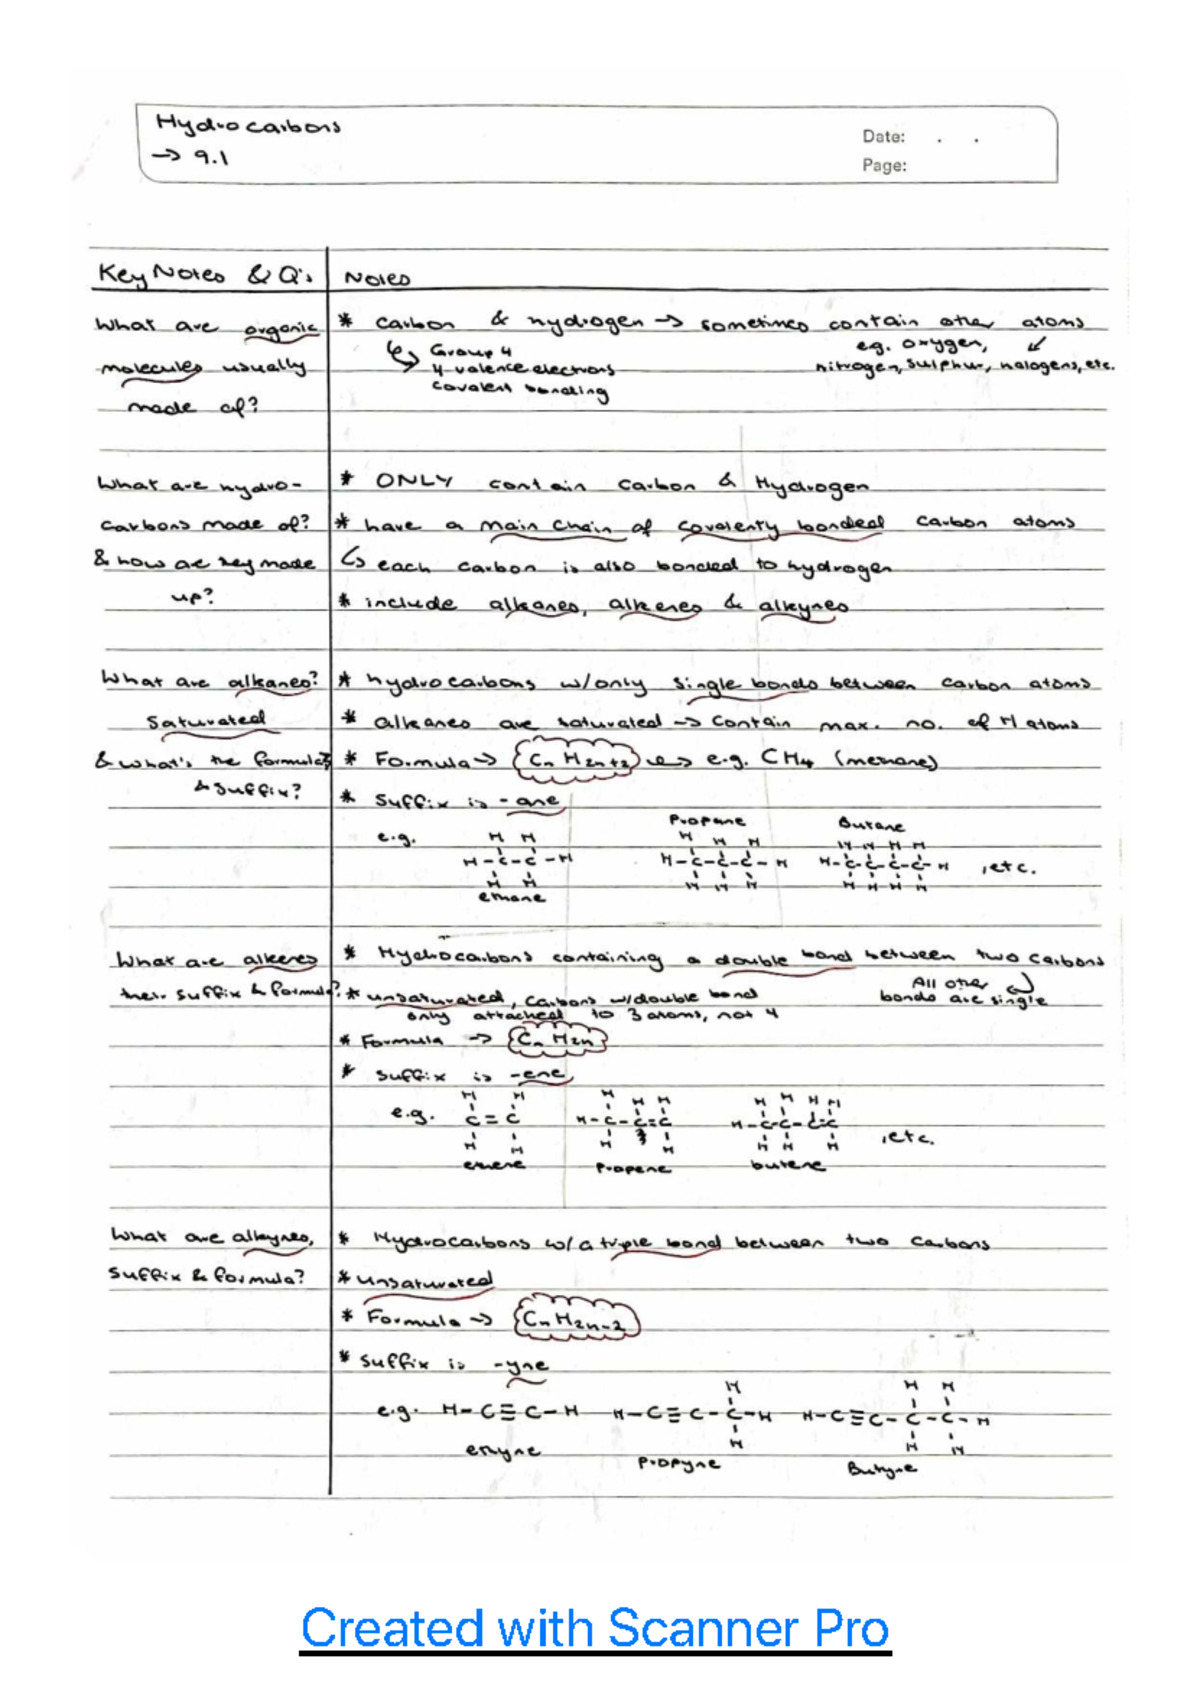 Hydrocarbons
→ 9.1
Date: . .
Page:
Key Notes & Q's
Notes
What are organic
molecules usually
made of?
* carbon & hydrogen → sometimes contain other atoms
↳ Group 4
4 valence electrons
covalent bonding
e.g. oxygen,
nitrogen, sulphur, halogens, etc.
What are hydro-
carbons made of?
& how are they made
up?
* ONLY contain carbon & Hydrogen
* have a main chain of covalently bonded carbon atoms
↳ each carbon is also bonded to hydrogen
* include alkanes, alkenes & alkynes
What are alkanes?
Saturated
& what's the formula
& suffix?
* hydrocarbons w/only single bonds between carbon atoms
* alkanes are saturated → contain max. no. of H atoms
* Formula → CnH2n+2 e.g. CH4 (methane)
* Suffix is -ane
e.g.
H H
H-C-C-H
H H
ethane
Propane
H H H
H-C-C-C-H
H H H
Butane
H H H H
H-C-C-C-C-H
H H H H
, etc.
What are alkenes
their suffix & formula?
* Hydrocarbons containing a double bond between two carbons
All other
bonds are single
* unsaturated, carbons w/double bond
only attached to 3 atoms, not 4
* Formula → CnH2n
* Suffix is -ene
e.g.
H H
C=C
H H
ethene
H H H
H-C-C=C
H H
Propene
H H H H
H-C-C-C=C
H H H
butene
, etc.
What are alkynes,
suffix & formula?
* Hydrocarbons w/a triple bond between two carbons
* unsaturated
* Formula → CnH2n-2
* suffix is -yne
e.g. H-C≡C-H
ethyne
H
H-C≡C-C-H
H
Propyne
H H
H-C≡C-C-C-H
H H
Butyne
Created with Scanner Pro